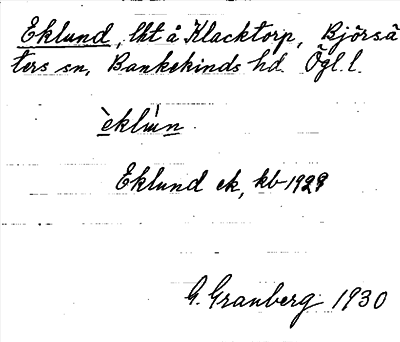 Eklund, lht å Klacktorp, Björsä
ters sn, Bankekinds hd. Ögl. l.
èklún
Eklund ek, kb 1929
G. Granberg 1930